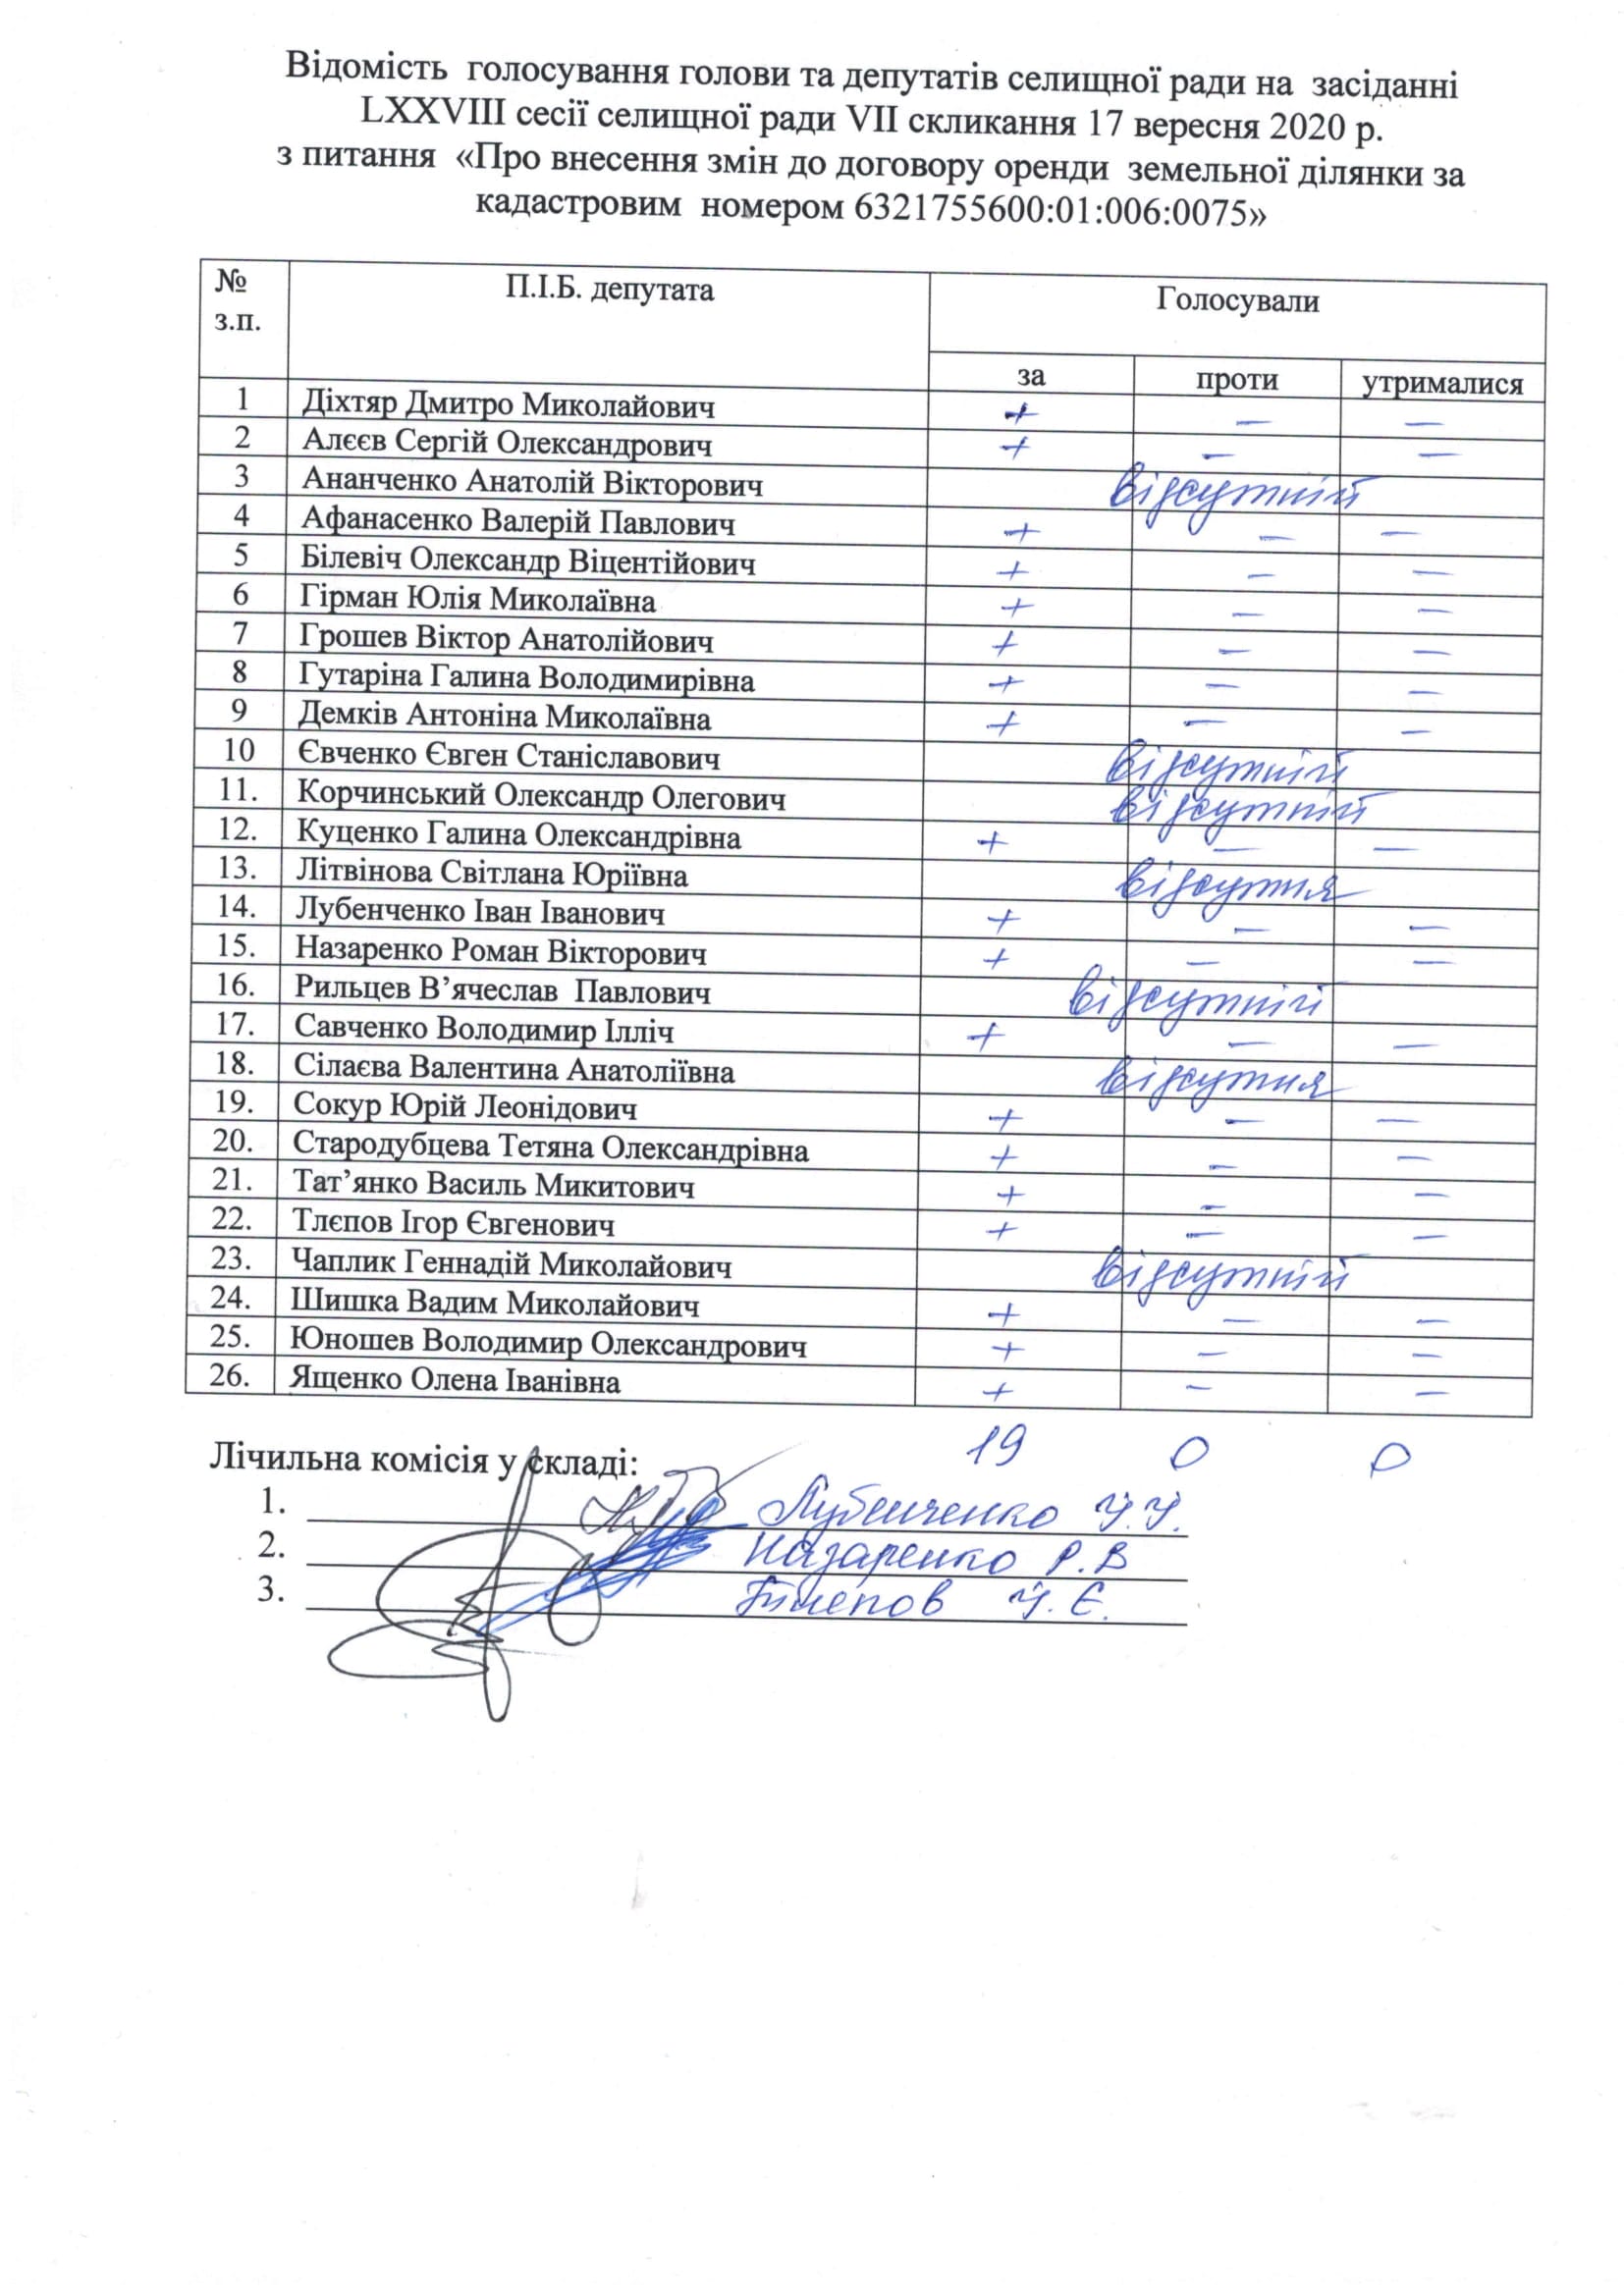 Відомість голосування голови та депутатів селищної ради на засіданні
LXXVIII сесії селищної ради VII скликання 17 вересня 2020 р.
з питання «Про внесення змін до договору оренди земельної ділянки за
кадастровим номером 6321755600:01:006:0075»
№ з.п. П.І.Б. депутата Голосували
за проти утрималися
1 Діхтяр Дмитро Миколайович + – –
2 Алєєв Сергій Олександрович + – –
3 Ананченко Анатолій Вікторович відсутній
4 Афанасенко Валерій Павлович + – –
5 Білевіч Олександр Віцентійович + – –
6 Гірман Юлія Миколаївна + – –
7 Грошев Віктор Анатолійович + – –
8 Гутаріна Галина Володимирівна + – –
9 Демків Антоніна Миколаївна + – –
10 Євченко Євген Станіславович відсутній
11. Корчинський Олександр Олегович відсутній
12. Куценко Галина Олександрівна + – –
13. Літвінова Світлана Юріївна відсутня
14. Лубенченко Іван Іванович + – –
15. Назаренко Роман Вікторович + – –
16. Рильцев В’ячеслав Павлович відсутній
17. Савченко Володимир Ілліч + – –
18. Сілаєва Валентина Анатоліївна відсутня
19. Сокур Юрій Леонідович + – –
20. Стародубцева Тетяна Олександрівна + – –
21. Тат’янко Василь Микитович + – –
22. Тлєпов Ігор Євгенович + – –
23. Чаплик Геннадій Миколайович відсутній
24. Шишка Вадим Миколайович + – –
25. Юношев Володимир Олександрович + – –
26. Ященко Олена Іванівна + – –
19 0 0
Лічильна комісія у складі:
1. Лубенченко І.І.
2. Назаренко Р.В
3. Тлєпов І.Є.